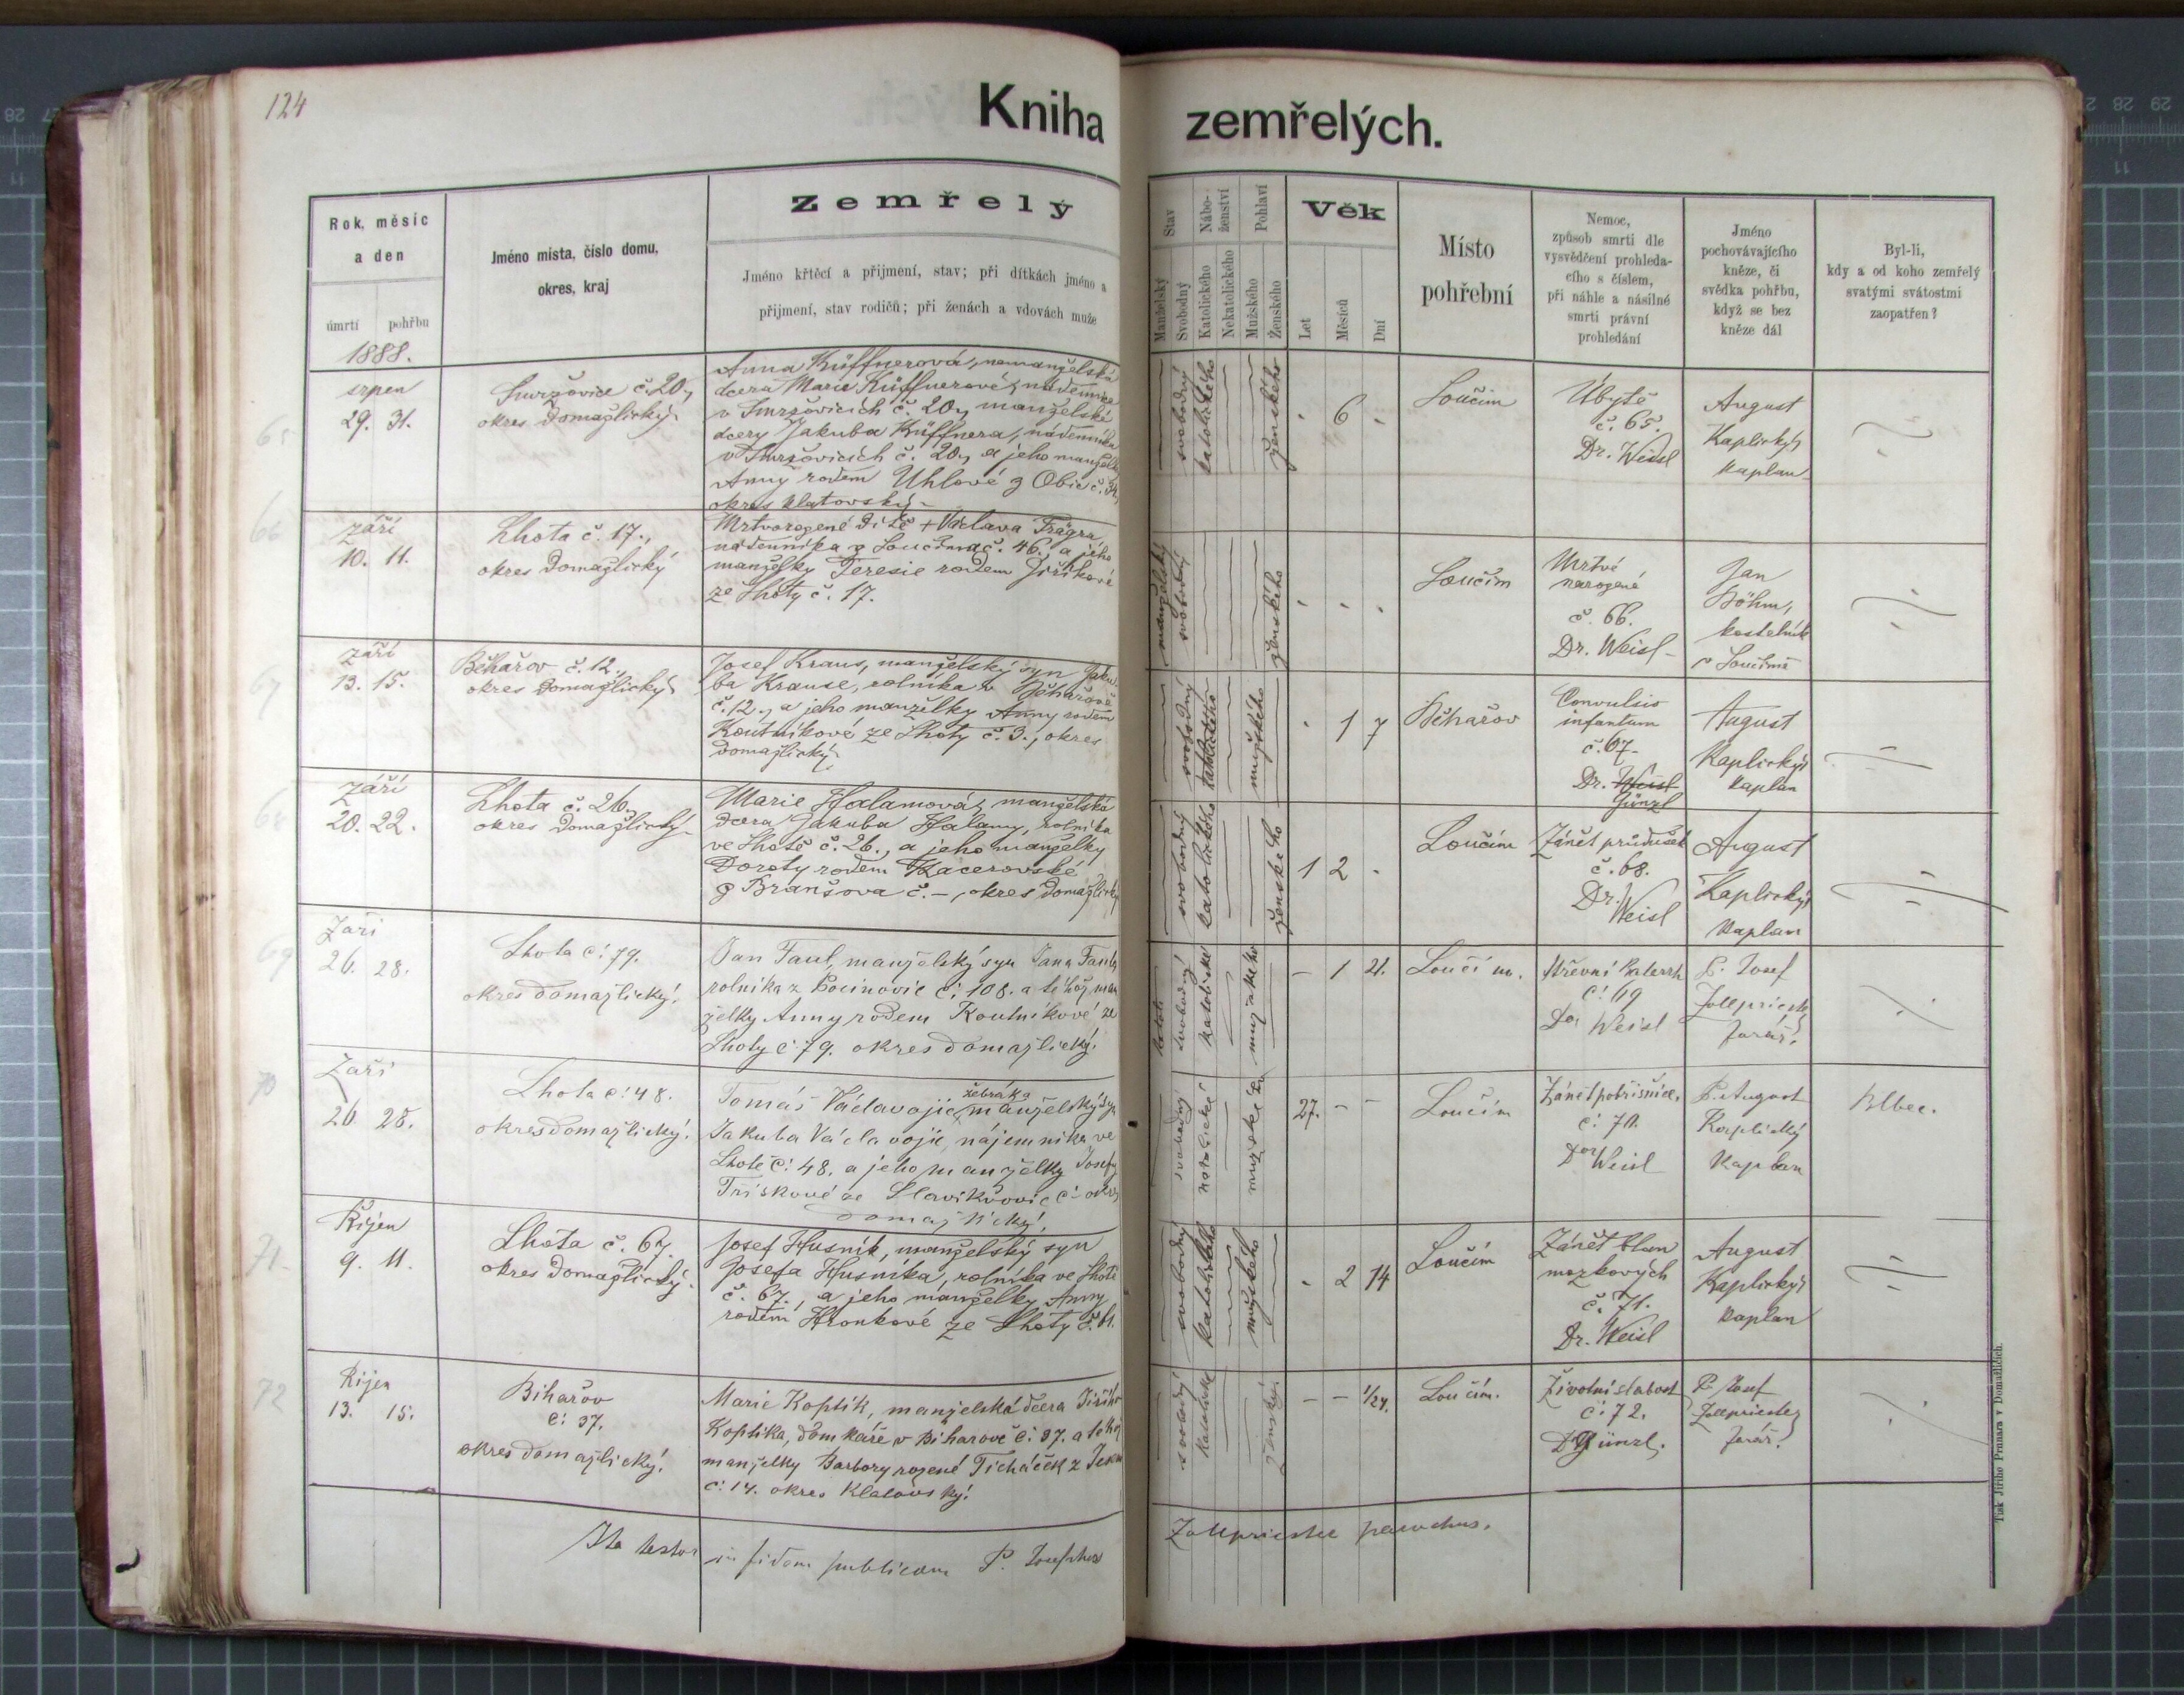 124
Kniha zemřelých.
Rok, měsíc
a den
úmrtí pohřbu
Jméno místa, číslo domu,
okres, kraj
Zemřelý
Jméno křtěcí a přijmení, stav; při dítkách jméno a
přijmení, stav rodičů; při ženách a vdovách muže
Stav
Manželský
Svobodný
Nábo-
ženství
Katolického
Nekatolického
Pohlaví
Mužského
Ženského
Věk
Let
Měsíců
Dní
Místo
pohřební
Nemoc,
způsob smrti dle
vysvědčení prohleda-
cího s číslem,
při náhle a násilné
smrti právní
prohledání
Jméno
pochovávajícího
kněze, či
svědka pohřbu,
když se bez
kněze dál
Byl-li,
kdy a od koho zemřelý
svatými svátostmi
zaopatřen?
1888.
65
srpen
29. 31.
Smržovice č. 20,
okres Domažlický
Anna Küffnerová, nemanželská
dcera Marie Küffnerové, nádennice
v Smržovicích č. 20, manželské
dcery Jakuba Küffnera, nádenníka
v Smržovicích č. 20, a jeho manželky
Anny rodem Uhlové z Obic č. 34,
okres klatovský
svobodný
katolického
ženského
6
Loučim
Úbytě
č. 65.
Dr. Weisl
August
Kaplický
kaplan
66
září
10. 11.
Lhota č. 17.,
okres Domažlický
Mrtvorozené dítě + Václava Trägra
nádenníka z Loučima č. 46., a jeho
manželky Teresie rodem Jiříkové
ze Lhoty č. 17.
manželský
svobodný
ženského
Loučim
Mrtvě
narozené
č. 66.
Dr. Weisl
Jan
Böhm,
kostelník
v Loučimě
67
září
13. 15.
Běhařov č. 12.,
okres Domažlický
Josef Kraus, manželský syn Jaku-
ba Krause, rolníka v Běhařově
č. 12., a jeho manželky Anny rodem
Koutníkové ze Lhoty č. 3., okres
Domažlický
svobodný
katolického
mužského
1 7
Běhařov
Convulsio
infantum
č. 67
Dr. Weisl
Günzl
August
Kaplický
kaplan
68
září
20. 22.
Lhota č. 26,
okres Domažlický
Marie Halamová, manželská
dcera Jakuba Halamy, rolníka
ve Lhotě č. 26., a jeho manželky
Doroty rodem Kacerovské
z Branšova č. –, okres Domažlický
svobodný
katolického
ženského
1 2
Loučim
Zánět průdušek
č. 68.
Dr. Weisl
August
Kaplický
kaplan
69
Září
26. 28.
Lhota č. 79.
okres domažlický.
Jan Faul, manželský syn Jana Faula
rolníka z Pocinovic č. 108. a téhož man
želky Anny rodem Koutníkové ze
Lhoty č 79. okres domažlický.
svobodný
katolické
mužského
– 1 21.
Loučim.
Střevní katarrh
č. 69
Dr Weisl
P. Josef
Zollpriester
farář.
70
Září
26 28.
Lhota č. 48.
okres domažlický.
žebráka
Tomáš Václavojic, manželský syn
Jakuba Václavojic, nájemníka ve
Lhotě č. 48. a jeho manželky Josefy
Třískové ze Slavíkovic č – okres
domažlický.
svobodný
katolické
mužského
27. – –
Loučim
Zánět pobřišnice,
č. 70.
Dor Weisl
P. August
Kaplický
Kaplan
Blbec.
71.
Říjen
9. 11.
Lhota č. 67.
okres Domažlický
Josef Husník, manželský syn
Josefa Husníka, rolníka ve Lhotě
č. 67., a jeho manželky Anny
rodem Hronkové ze Lhoty č. 61.
svobodný
katolického
mužského
2 14
Loučim
Zánět blan
mozkových
č. 71.
Dr. Weisl
August
Kaplický
kaplan
72
Říjen
13. 15.
Bihařov
č. 37.
okres domažlický.
Marie Koptik, manželská dcera Jiřího
Koptika, domkáře v Biharově č. 37. a téhož
manželky Barbory rozené Ticháček z
č. 14. okres Klatovský.
svobodný
katolické
ženský
– – 1/24.
Loučim.
Životní slabost
č. 72.
Dr Günzl.
P. Josef
Zollpriester
farář.
Ita testor in fidem publicam P. Josephus Zollpriester parochus.
Tisk Jiřího Prunara v Domažlicích.